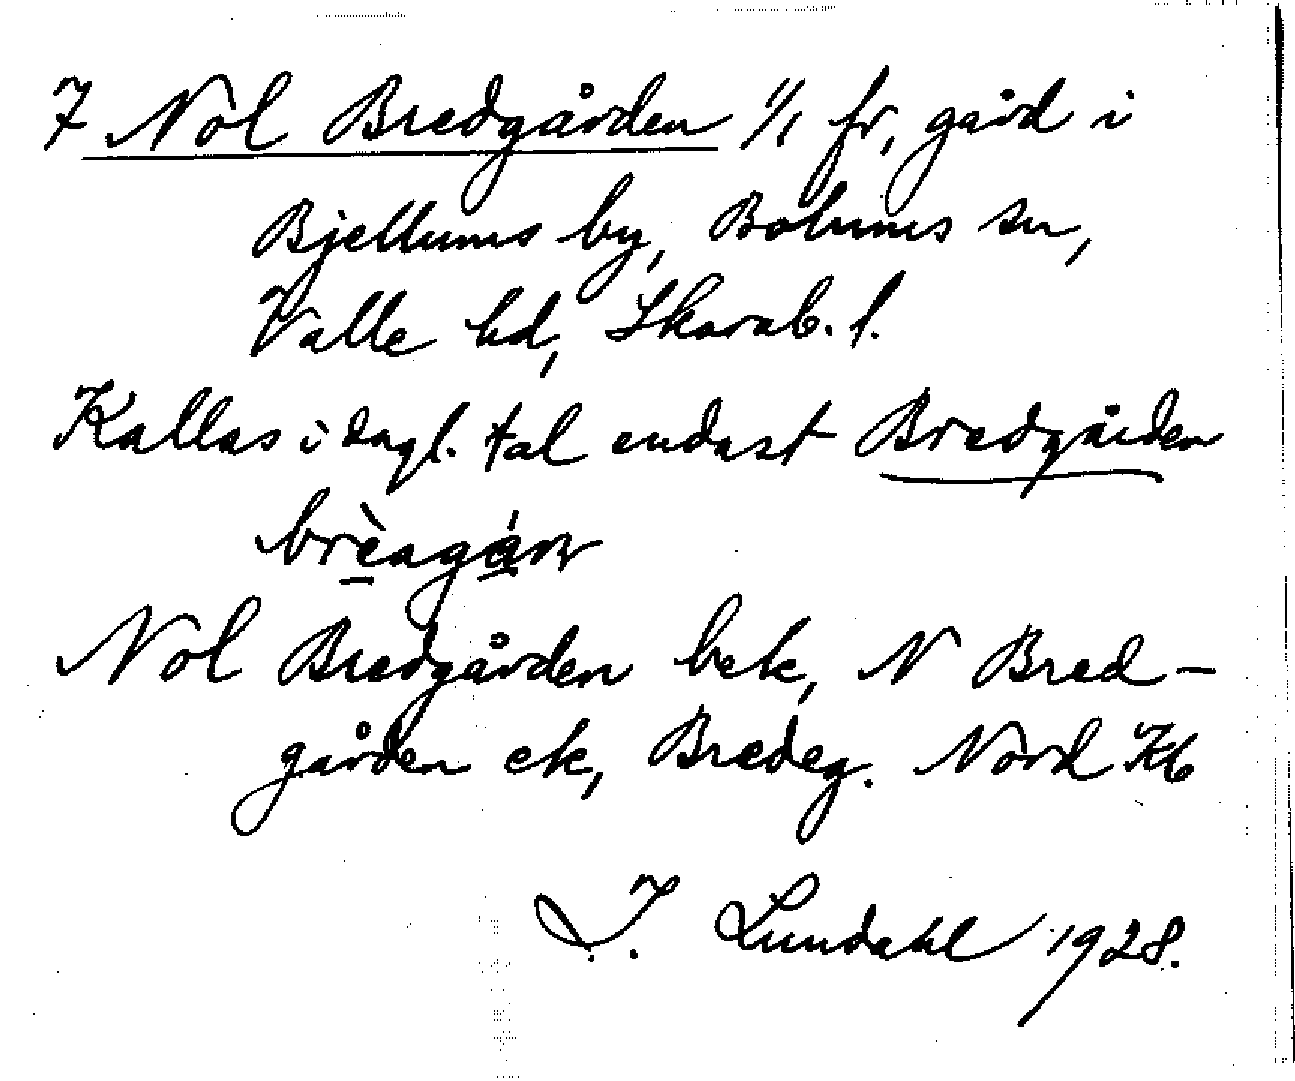 7 Nol Bredgården 1/1 fr, gård i
Bjellums by, Bolums sn,
Valle hd, Skarab. l.
Kallas i dagl. tal endast Bredgården
brèagán
Nol Bredgården bek, N Bred-
gården ek, Bredeg. Nord Kb
I. Lundahl 1928.